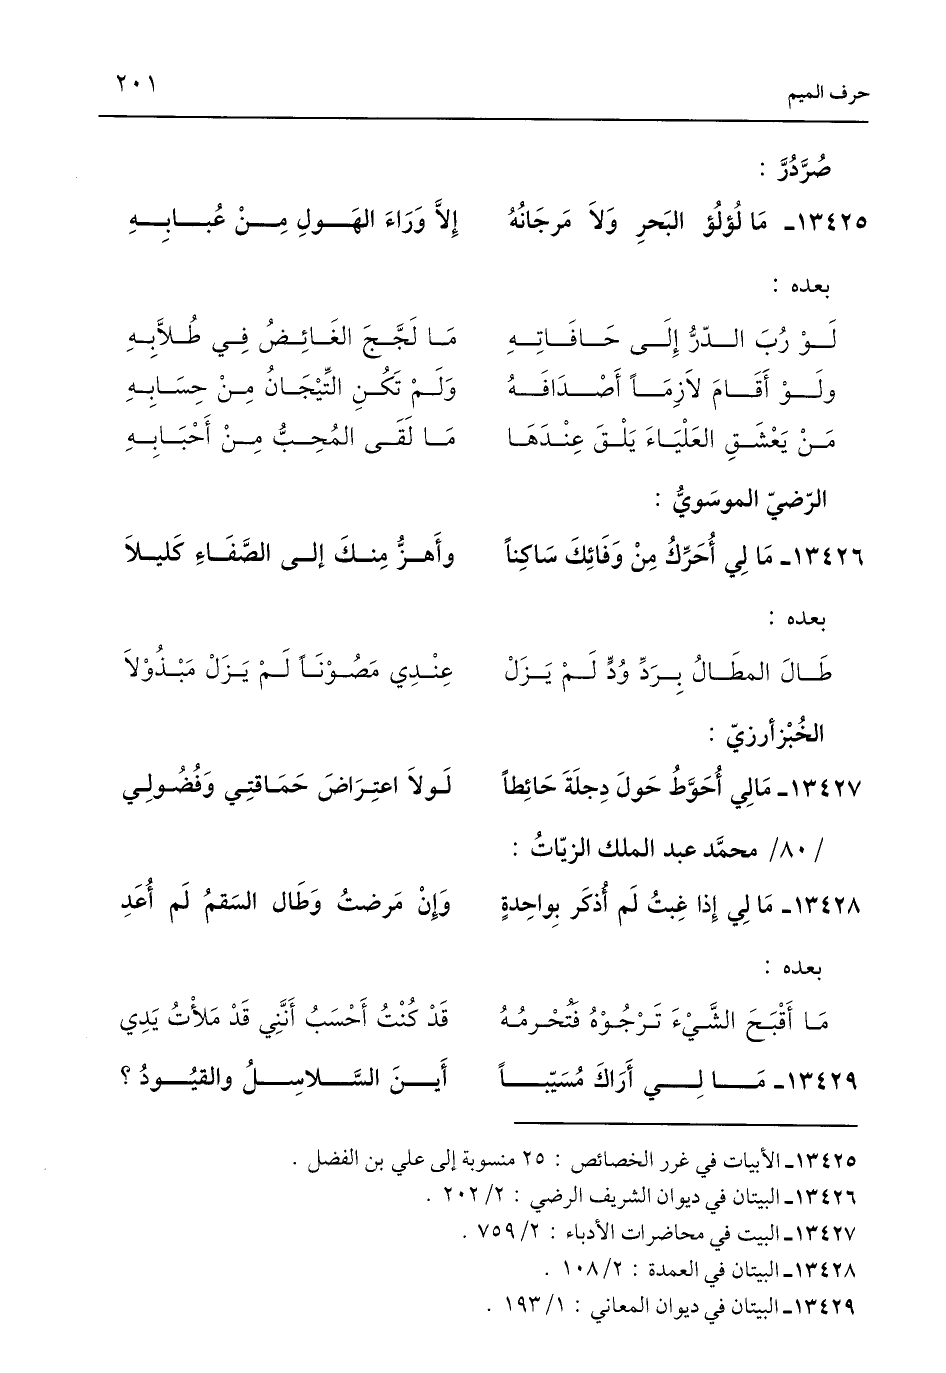 حرف الميم ٢٠١
صُرَّدُرَّ :
١٣٤٢٥ـ مَا لُؤلُؤ البَحرِ وَلاَ مَرجَانُهُ إِلاَّ وَرَاءَ الهَـولِ مِـنْ عُبـابِـهِ
بعده :
لَـوْ رُبَ الـدّرُّ إِلَـى حَـافَـاتِـهِ مَـا لَجَّـجَ الغَـائِـصُ فِـي طُـلاَّبِهِ
ولَـوْ أَقَـامَ لاَزِمَـاً أَصْـدَافَـهُ وَلَـمْ تَكُـنِ التِّيْجَـانُ مِـنْ حِسَـابِـهِ
مَـنْ يَعْشَـقِ العَلْيَـاءَ يَلْـقَ عِنْـدَهَـا مَـا لَقَـى المُحِـبُّ مِـنْ أَحْبَـابِـهِ
الرّضيّ الموسَويُّ :
١٣٤٢٦ـ مَا لِي أُحَرِّكُ مِنْ وَفَائِكَ سَاكِناً وأَهـزُّ مِنـكَ إلـى الصَّفَـاءِ كَليـلاَ
بعده :
طَـالَ المطَـالُ بِـرَدِّ وُدٍّ لَـمْ يَـزَلْ عِنْـدِي مَصُـوْنَـاً لَـمْ يَـزَلْ مَبْـذُوْلاَ
الخُبْز أرزيّ :
١٣٤٢٧ـ مَالِي أُحَوَّطُ حَولَ دِجلَةَ حَائِطاً لَـولاَ اعتِـرَاضَ حَمَـاقتِـي وَفُضُـولِـي
/ ٨٠/ محمَّد عبد الملك الزيّاتُ :
١٣٤٢٨ـ مَا لِي إِذا غِبتُ لَم أُذكَر بِواحِدةٍ وَإِنْ مَرضتُ وَطَال السَقمُ لَم أُعَدِ
بعده :
مَـا أَقْبَـحَ الشَّـيْءَ تَـرْجُـوْهُ فَتُحْرمُـهُ قَدْ كُنْتُ أَحْسَبُ أَنَّنِي قَدْ مَلأْتُ يَدِي
١٣٤٢٩ـ مَـا لِـي أَرَاكَ مُسَيّبـاً أَيـنَ السَّـلاسِـلُ والقيُـودُ ؟
١٣٤٢٥ـ الأبيات في غرر الخصائص : ٢٥ منسوبة إلى علي بن الفضل .
١٣٤٢٦ـ البيتان في ديوان الشريف الرضي : ٢٠٢/٢ .
١٣٤٢٧ـ البيت في محاضرات الأدباء : ٧٥٩/٢ .
١٣٤٢٨ـ البيتان في العمدة : ١٠٨/٢ .
١٣٤٢٩ـ البيتان في ديوان المعاني : ١٩٣/١ .